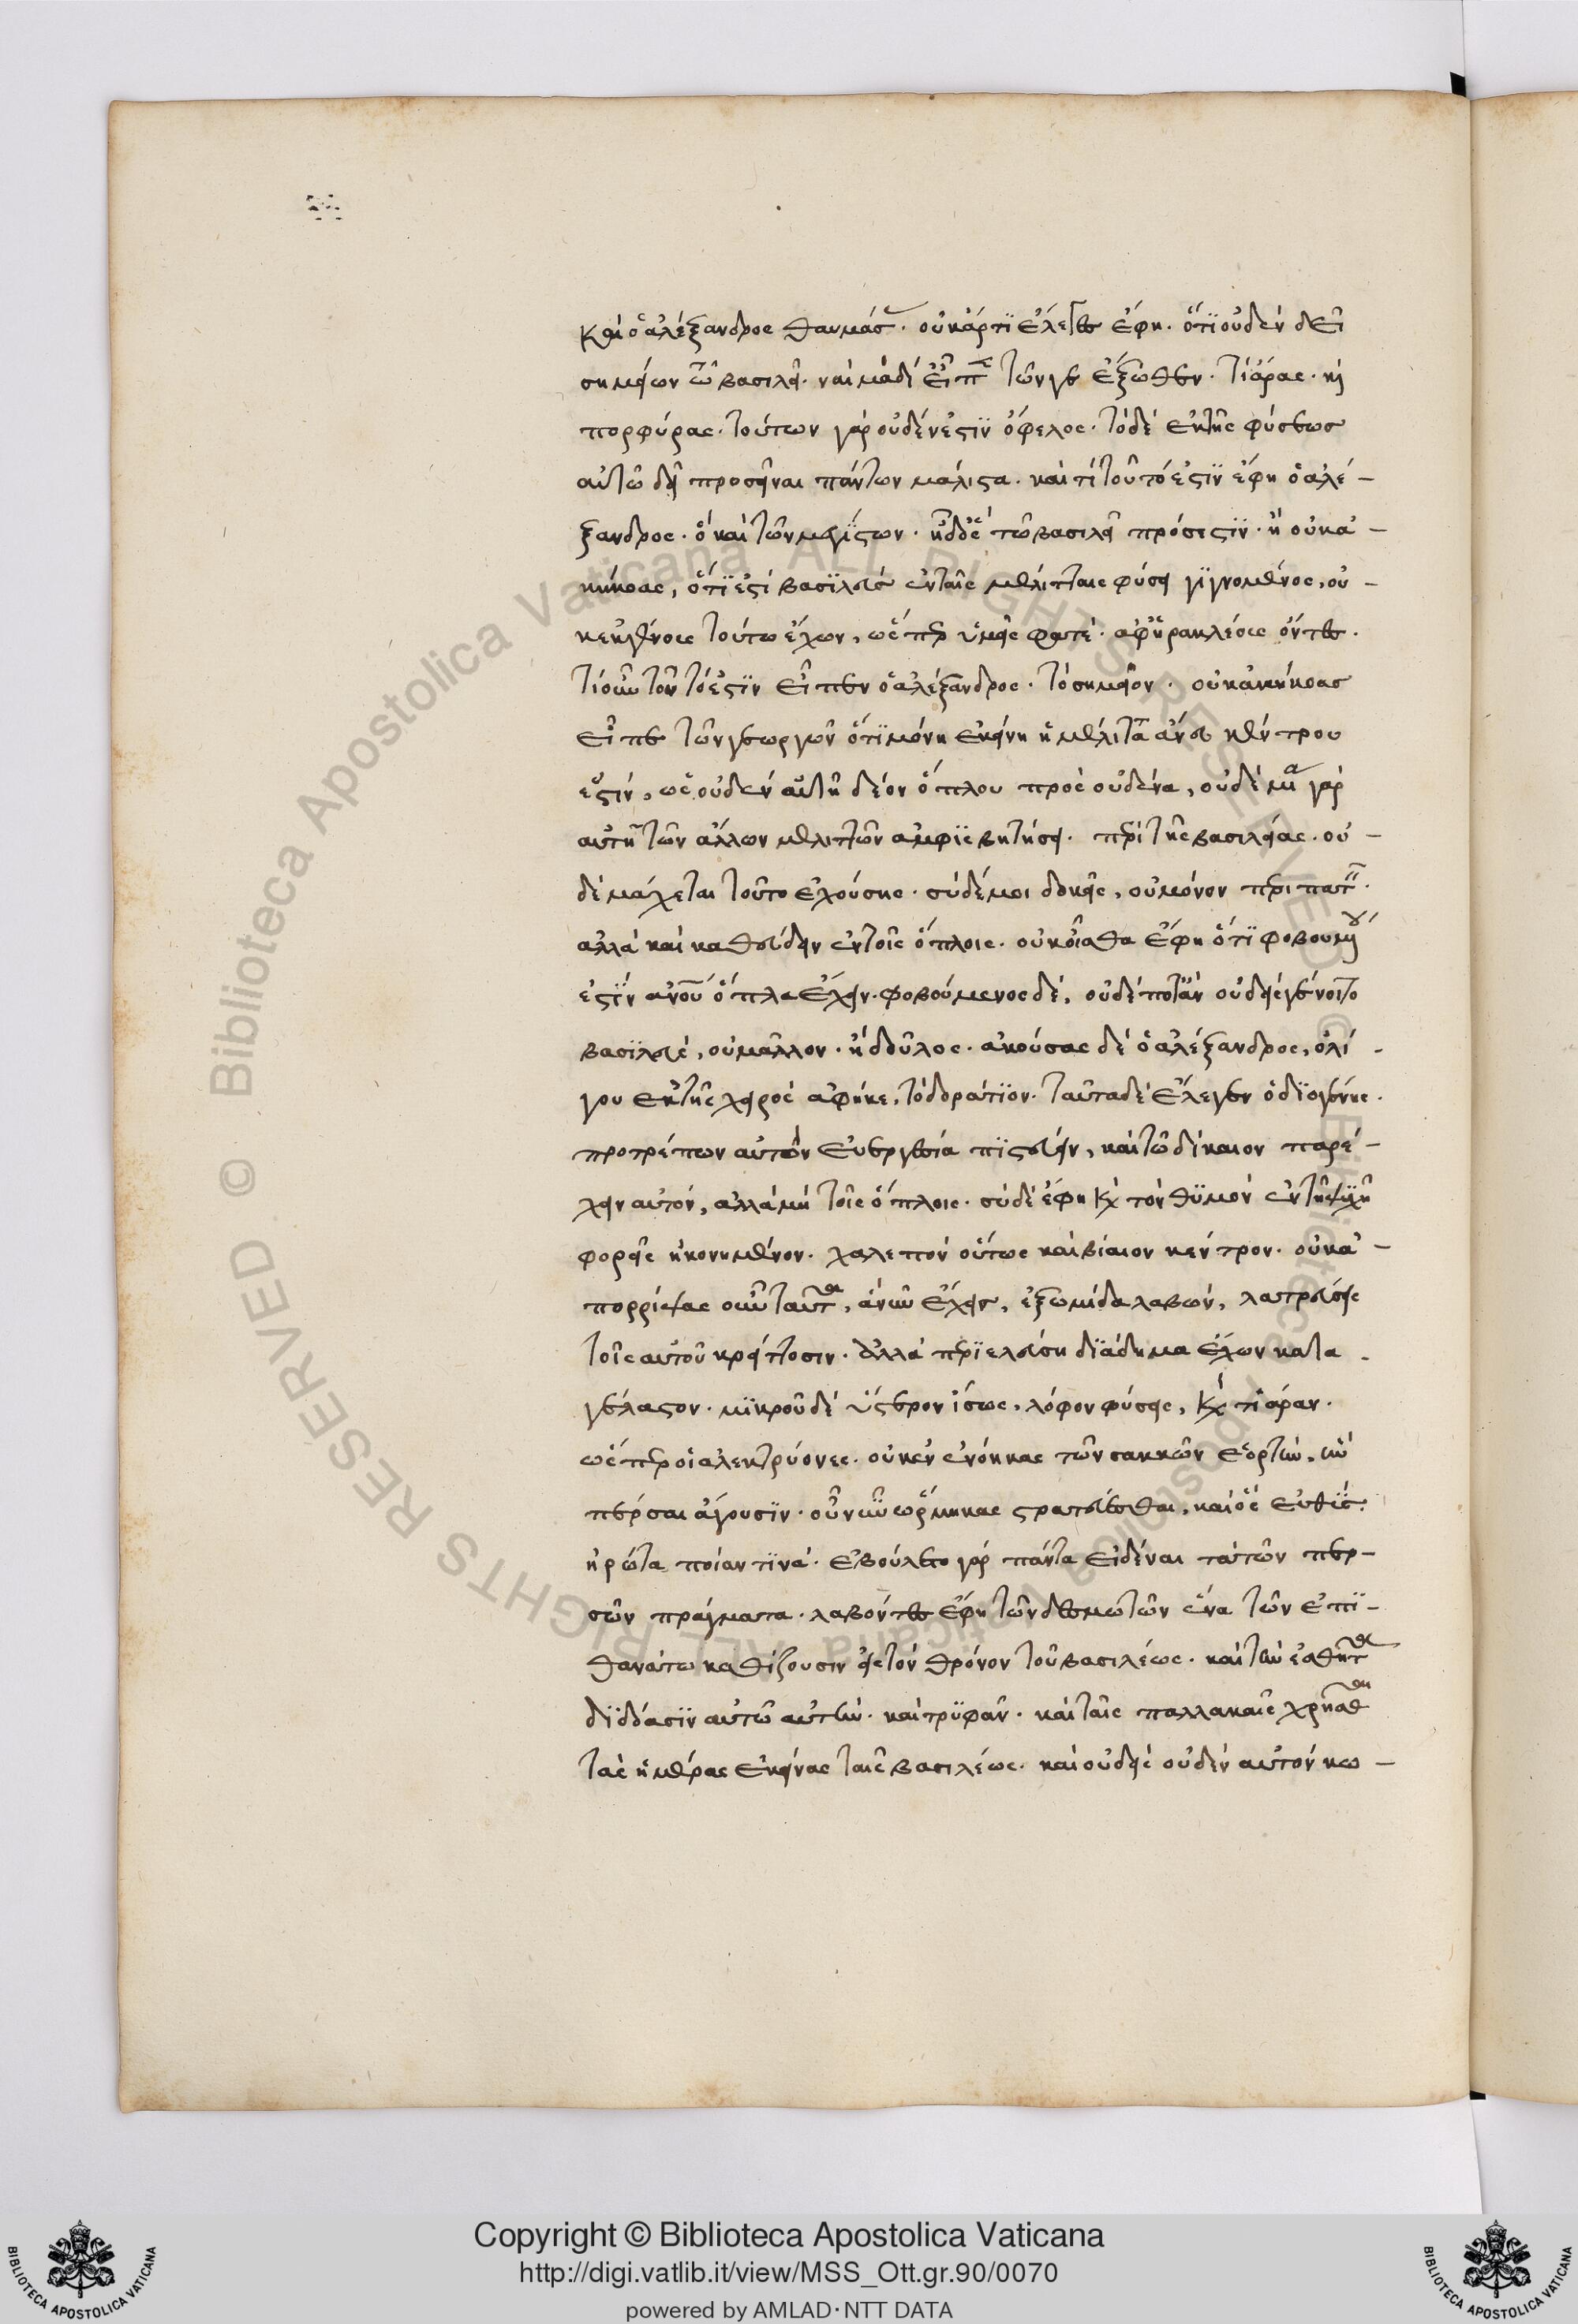 καὶ ὁ ἀλέξανδρος θαυμάσας. οὐκ ἄρτϊ ἔλεγες ἔφη. ὅτϊ οὐδὲν δεῖ
σημείων τῶ βασιλεῖ. ναὶ μὰ δί εἶπε τῶν γε ἔξωθεν. τιάρας. καὶ
πορφύρας. τούτων γὰρ οὐδέν ἐστϊν ὄφελος. τὸ δὲ ἐκ τῆς φύσεως
αὐτῶ δεῖ προσεῖναι πάντων μάλιστα. καὶ τί τοῦτό ἐστϊν ἔφη ὁ αλέ –
ξανδρος. ὃ καὶ τῶν μελϊττῶν. ἦ δὲ ὃς τῶ βασιλεῖ πρόσεστϊν. ἢ οὐκ α –
κήκοας, ὅτϊ ἐστὶ βασϊλεὺς ἐν ταῖς μελίτταις φύσει γϊγνομένος, οὐ –
κ ἐκ γένους τοῦτο ἔχων, ὥς περ ὑμεῖς φατὲ. ἀφ ἡρακλέους ὄντες.
τί οὖν τοῦτό ἐστϊν εἶπεν ὁ ἀλέξανδρος. τὸ σημεῖον. οὐκ ἀκήκοας
εἶπε τῶν γεωργῶν ὅτϊ μόνη ἐκείνη ἡ μέλιττα ἄνευ κέντρου
ἐστίν, ὡς οὐδὲν αὐτῆ δέον ὅπλου πρὸς οὐδένα, οὐδὲ μία γὰρ
αὐτῆ τῶν ἄλλων μελιττῶν αμφϊσβητήσει. περὶ τῆς βασιλείας. οὐ –
δὲ μάχεται τοῦτο ἐχούσης. σὺ δέ μοι δοκεῖς, οὐ μόνον περιπατεῖν.
αλλὰ καὶ καθεύδειν ἐν τοῖς ὅπλοις. οὐκ οἶσθα ἔφη ὅτϊ φοβουμένου
ἐστϊν ἀνθρώπου ὅπλα ἔχειν. φοβούμενος δὲ, οὐδέποτ ἂν οὐδεὶς γένοιτο
βασϊλεὺς, οὐ μᾶλλον. ἢ δοῦλος. ακούσας δὲ ὁ ἀλέξανδρος, ὀλί –
γου ἐκ τῆς χειρὸς ἀφῆκε, τὸ δοράτϊον. ταῦτα δὲ ἔλεγεν ὁ δϊογένης.
προτρέπων αὐτὸν εὐεργεσία πϊστεύειν, καὶ τῶ δίκαιον παρέ –
χειν αὐτόν, αλλὰ μὴ τοῖς ὅπλοις. σὺ δὲ ἔφη καὶ τὸν θϋμὸν ἐν τῆ ψϋχῆ
φορεῖς ἠκονημένον. χαλεπὸν οὕτως καὶ βίαιον κέντρον. οὐκ α –
πορρίψας οὖν ταῦτα, ἃ νῦν ἔχεις, ἐξωμίδα λαβὼν, λατρεύσεις
τοῖς αὐτοῦ κρείττοσιν. ἀλλὰ περϊελεύση δϊάδημα ἔχων κατα –
γέλαστον. μϊκροῦ δὲ ὕστερον ἴσως, λόφον φύσεις, καὶ τϊάραν.
ὥς περ οἱ ἀλεκτρύονες. οὐκ ἐνενόηκας τῶν σακκῶν ἑορτὴν, ἣν
πέρσαι ἄγουσϊν. οὗ νῦν ὥρμηκας στρατεύεσθαι, καὶ ὃς εὐθὺς.
ἠρώτα ποίαν τϊνά. ἐβούλετο γὰρ πάντα εἰδέναι τὰ τῶν περ –
σῶν πράγματα. λαβόντες ἔφη τῶν δεσμωτῶν ἕνα τῶν ἐπϊ –
θανάτω καθίζουσιν εἰς τὸν θρόνον τοῦ βασιλέως. καὶ τὴν ἐσθῆτα
δϊδόασϊν αὐτῶ αὐτὴν. καὶ τρϋφᾶν. καὶ ταῖς παλλακαῖς χρῆσθαι
τὰς ἡμέρας ἐκείνας ταῖς βασιλέως. καὶ οὐδεὶς οὐδὲν αὐτὸν κω –
Copyright © Biblioteca Apostolica Vaticana
http://digi.vatlib.it/view/MSS_Ott.gr.90/0070
powered by AMLAD·NTT DATA